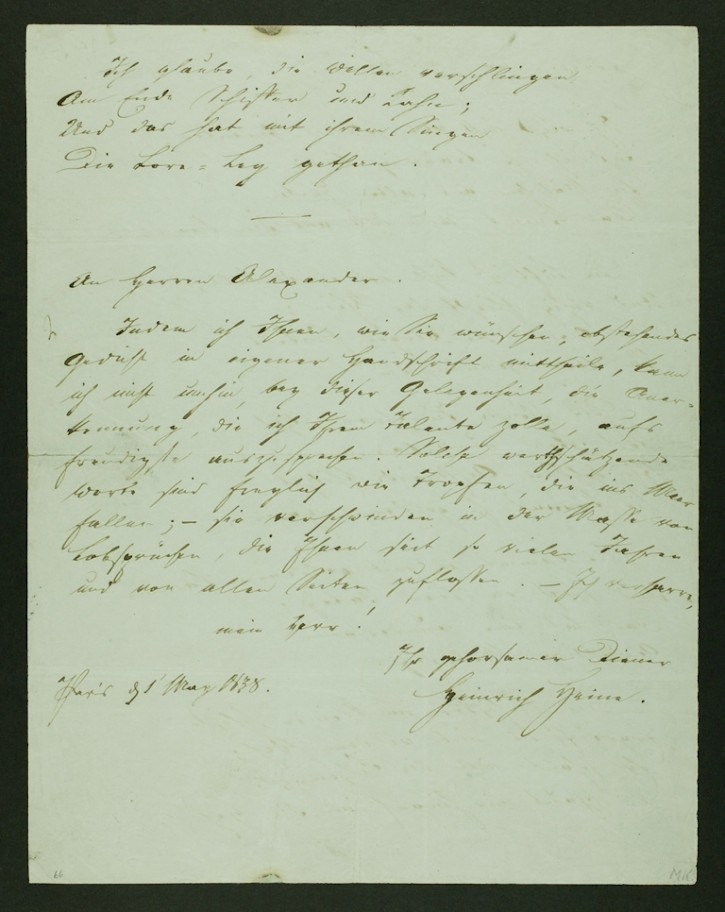 Ich glaube, die Wellen verschlingen
Am Ende Schiffer und Kahn;
Und das hat mit ihrem Singen
Die Lore-Ley gethan.
An Herren Alexander.
Indem ich Ihnen, wie Sie wünschen, obstehendes
Gedicht in eigener Handschrift mittheile, kann
ich nicht umhin, bey dieser Gelegenheit, die Aner-
kennung, die ich Ihrem Talente zolle, aufs
freudigste auszusprechen. Solche werthschätzende
Worte sind freylich wie Tropfen, die ins Meer
fallen; – sie verschwinden in der Masse von
Lobsprüchen, die Ihnen seit so vielen Jahren
und von allen Seiten zuflossen. – Ich verharre,
mein Herr!
Ihr gehorsamer Diener
Heinrich Heine.
Paris d 1 May 1838.